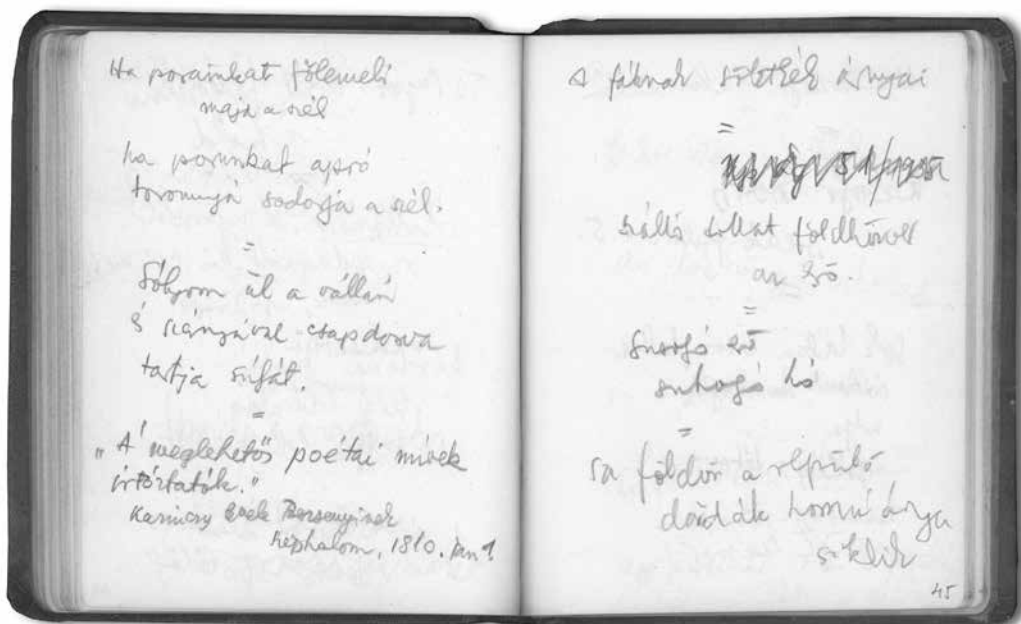 Ha porainkat fölemeli
majd a szél
ha porunkat apró
toronnyá sodorja a szél.
=
Sólyom ül a vállán
és szárnyával csapdosva
tartja súlyát.
=
„A' meglehetős poétai mívek
írtóztatók."
Kazinczy levele Berzsenyinek
Széphalom, 1810. jan 1.
A fáknak sötétkék árnyai
=
szálló sóhat földhözver
az eső.
=
Susogó eső
suhogó hó
=
s a földön a repülő
árnya
siklik
45